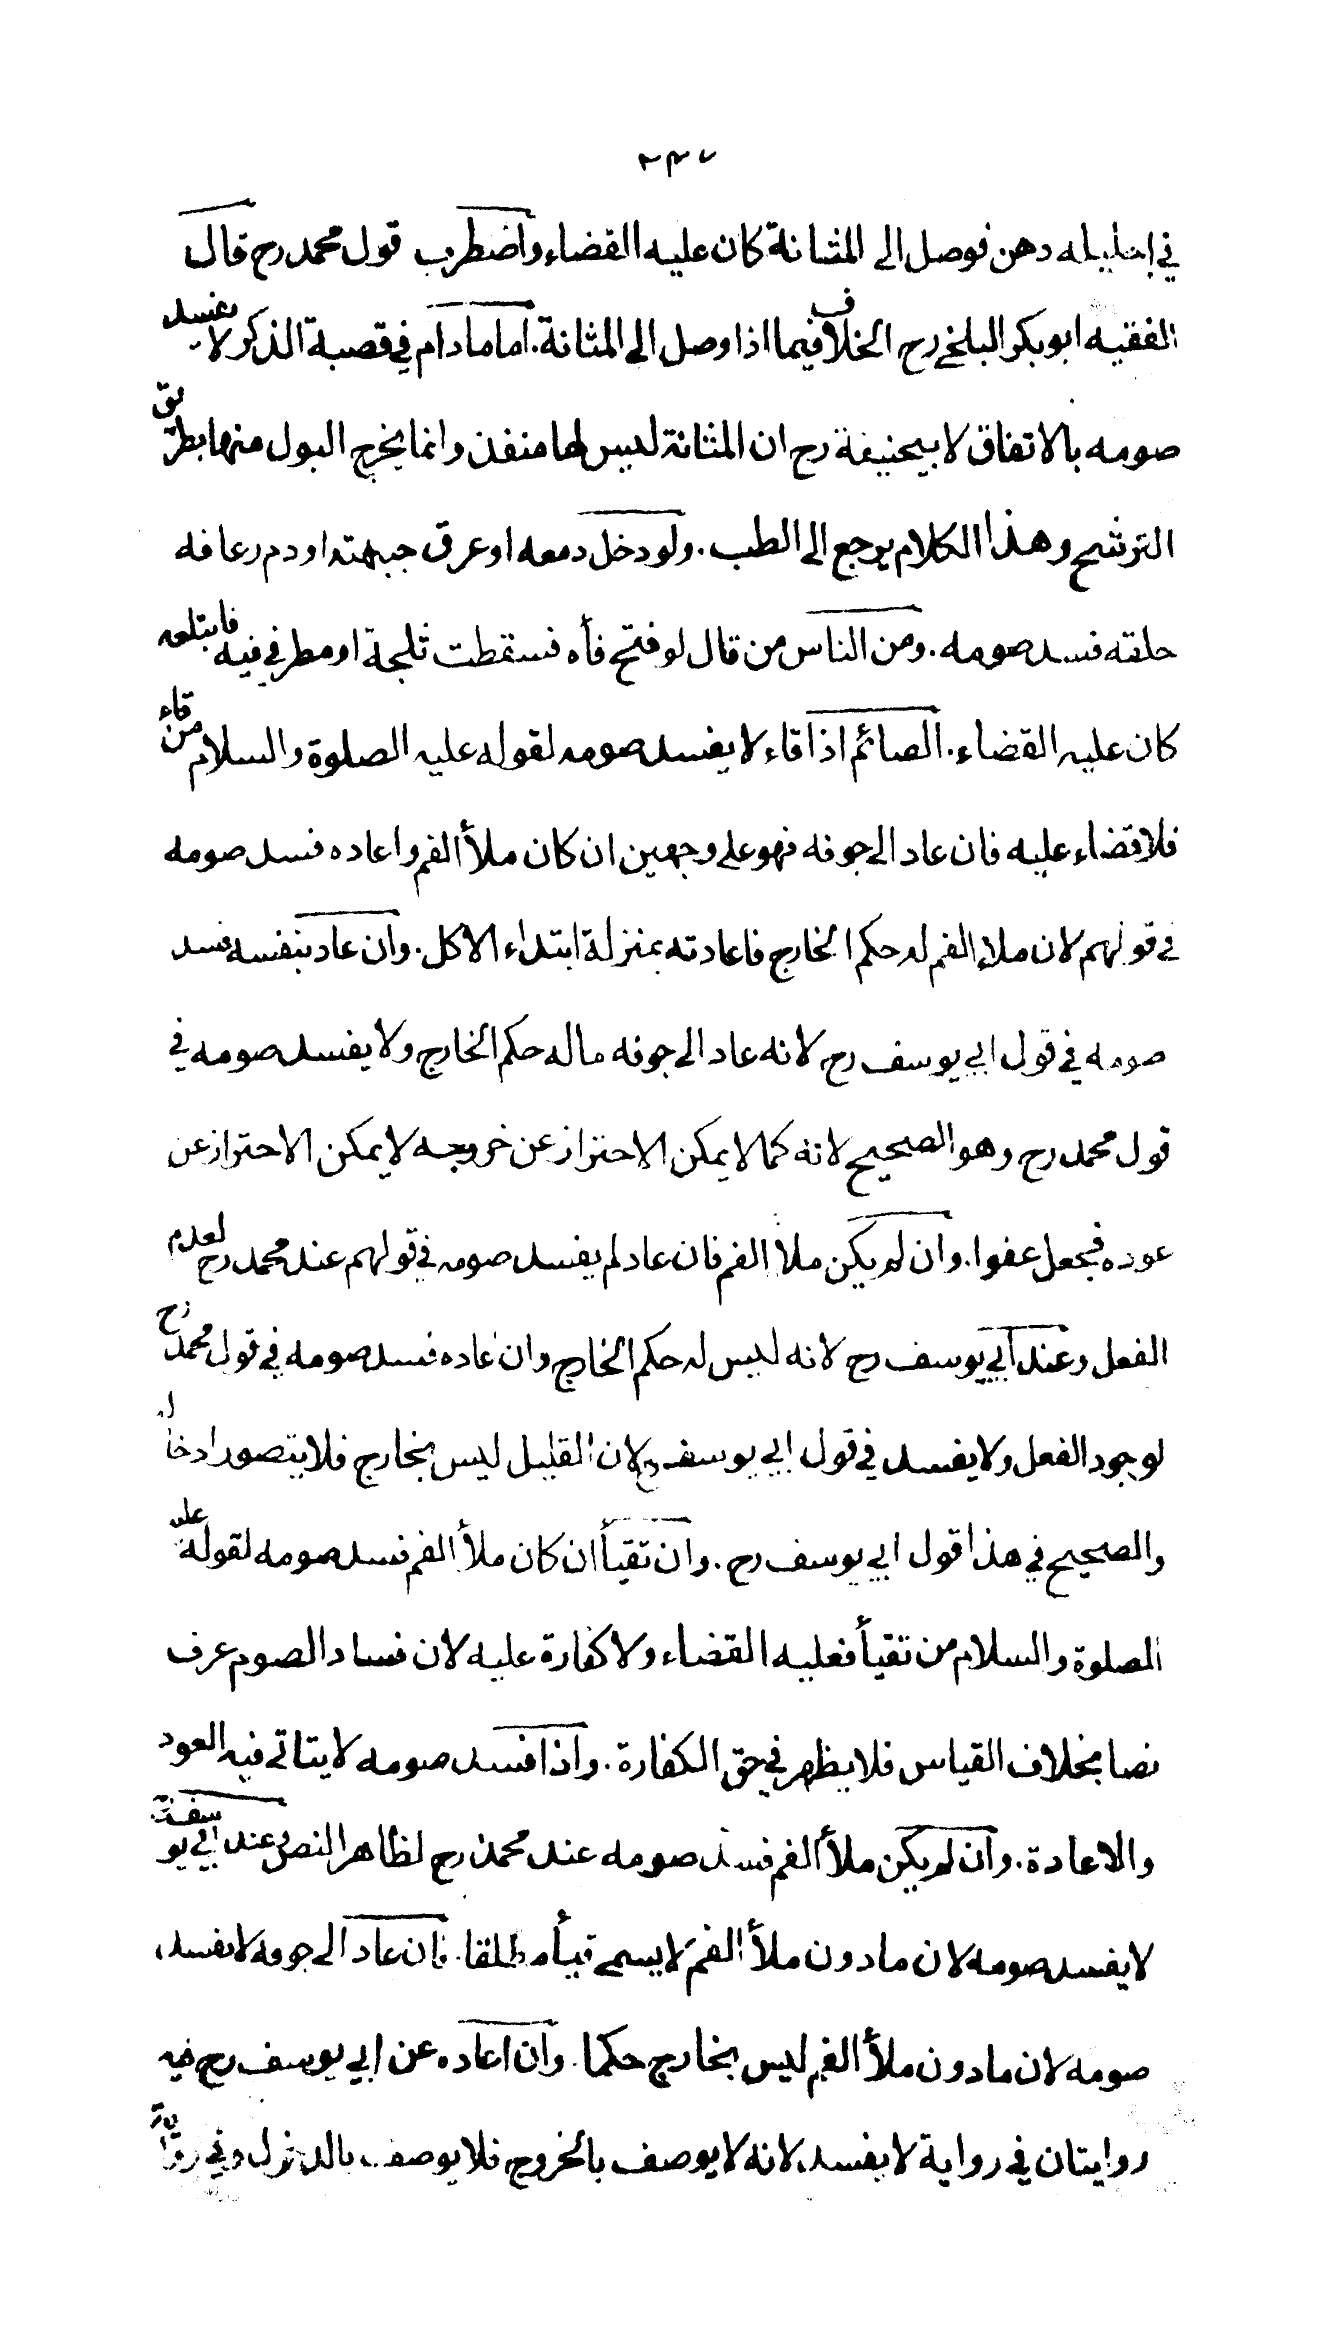 ٢٣٧
في إحليله دهن فوصل الى المثانة كان عليه القضاء واضطرب قول محمد رح قال
الفقيه ابو بكر البلخي رح الخلاف فيما اذا وصل الى المثانة. اما مادام في قصبة الذكر لا يفسد
صومه بالاتفاق لابيحنيفة رح ان المثانة ليس لها منفذ وانما يخرج البول منها بطريق
الترشح وهذا الكلام يرجع الى الطب. ولو دخل دمعه او عرق جبهته او دم رعافه
حلقه فسد صومه. ومن الناس من قال لو فتح فأه فسقطت ثلجة او مطر في فيه فابتلعه
كان عليه القضاء. الصائم اذا قاء لا يفسد صومه لقوله عليه الصلوة والسلام من قاء
فلا قضاء عليه فان عاد الى جوفه فهو على وجهين ان كان ملأ الفم واعاده فسد صومه
في قولهم لان ملاء الفم له حكم الخارج فاعادته بمنزلة ابتداء الاكل. وان عاد بنفسه فسد
صومه في قول ابي يوسف رح لانه عاد الى جوفه ماله حكم الخارج ولا يفسد صومه في
قول محمد رح وهو الصحيح لانه كما لا يمكن الاحتراز عن خروجه لا يمكن الاحتراز عن
عوده فجعل عفوا. وان لم يكن ملا الفم فان عاد لم يفسد صومه في قولهم عند محمد رح لعدم
الفعل وعند أبي يوسف رح لانه ليس له حكم الخارج وان عاده فسد صومه في قول محمد رح
لوجود الفعل ولا يفسد في قول ابي يوسف رح لان القليل ليس بخارج فلا يتصور ادخاله
والصحيح في هذا قول ابي يوسف رح. وان تقيأ ان كان ملأ الفم فسد صومه لقوله عليه
الصلوة والسلام من تقيأ فعليه القضاء ولا كفارة عليه لان فساد الصوم عرف
نصا بخلاف القياس فلا يظهر في حق الكفارة. واذا فسد صومه لا يتاتى فيه العود
والاعادة. وان لم يكن ملأ الفم فسد صومه عند محمد رح لظاهر النص وعند ابي يوسف رح
لا يفسد صومه لان مادون ملأ الفم لا يسمى قيأ مطلقا. فان عاد الى جوفه لا يفسد
صومه لان مادون ملأ الفم ليس بخارج حكما. وان اعاده عن ابي يوسف رح فيه
روايتان في رواية لا يفسد لانه لا يوصف بالخروج فلا يوصف بالدخول وفي رواية